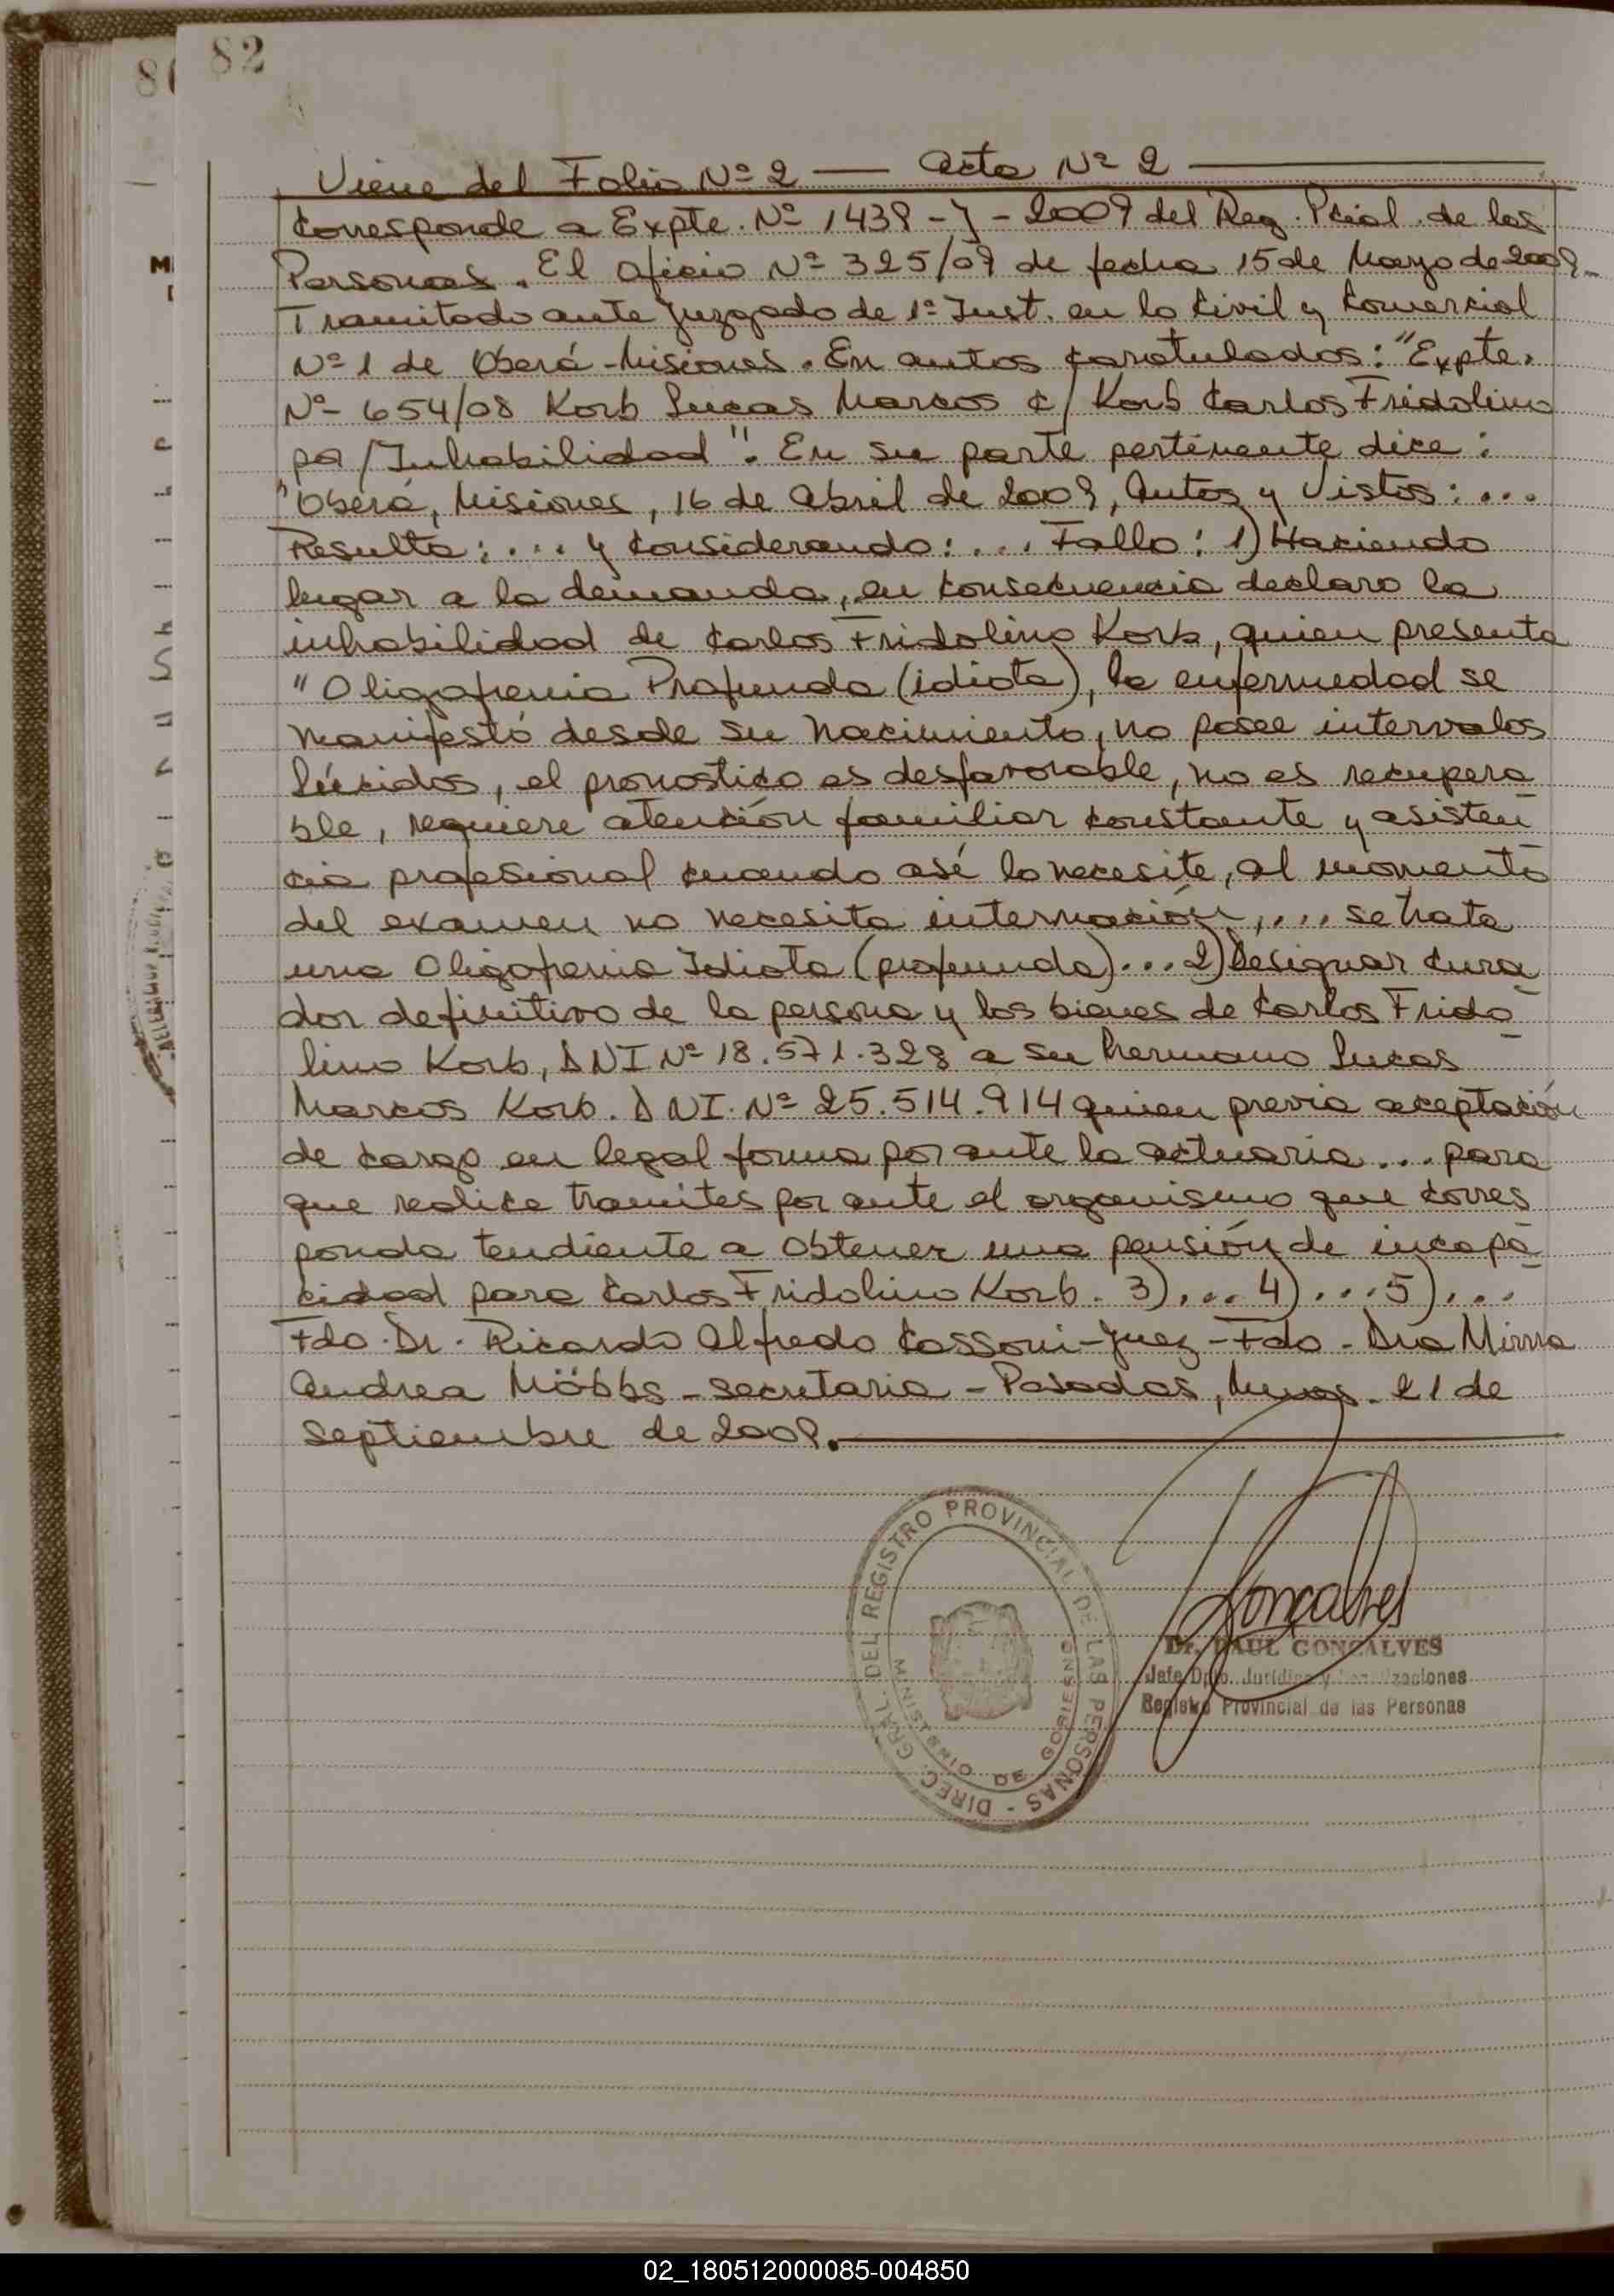 82
Viene del Folio Nº 2 — Acta Nº 2
Corresponde a Expte. Nº 1439-J-2009 del Reg. Pcial. de las
Personas. El Oficio Nº 325/09 de fecha 15 de Mayo de 2009.-
Tramitado ante Juzgado de 1º Inst. en lo Civil y Comercial
Nº 1 de Oberá-Misiones. En autos caratulados: "Expte.
Nº 654/08 Korb Lucas Marcos c/ Korb Carlos Fridolino
pa/Inhabilidad". En su parte pertinente dice:
"Oberá, Misiones, 16 de Abril de 2009, Autos y Vistos: ...
Resulta: ... y Considerando: ... Fallo: 1) Haciendo
lugar a la demanda, en consecuencia declaro la
inhabilidad de Carlos Fridolino Korb, quien presenta
"Oligofrenia Profunda (idiota), la enfermedad se
manifestó desde su nacimiento, no posee intervalos
lúcidos, el pronostico es desfavorable, no es recupera
ble, requiere atención familiar constante y asisten
cia profesional cuando así lo necesite, al momento
del examen no necesita internación, ... se trata
una Oligofrenia Idiota (profunda)... 2) Designar Cura
dor definitivo de la persona y los bienes de Carlos Frido
lino Korb, DNI Nº 18.571.328 a su hermano Lucas
Marcos Korb. DNI. Nº 25.514.914 quien previa aceptación
de cargo en legal forma por ante la actuaria... para
que realice tramites por ante el organismo que corres
ponda tendiente a obtener una pensión de incapa
cidad para Carlos Fridolino Korb. 3)... 4)... 5)...
Fdo. Dr. Ricardo Alfredo Cassoni-Juez-Fdo-Dra Mirna
Andrea Möbbs-secretaria-Posadas, Mnes. 21 de
septiembre de 2009.
DIREC. GRAL. DEL REGISTRO PROVINCIAL DE LAS PERSONAS -
MINISTERIO DE GOBIERNO
Goncalves
Dr. RAUL GONCALVES
Jefe Dpto. Jurídico y
Registro Provincial de las Personas
02_180512000085-004850